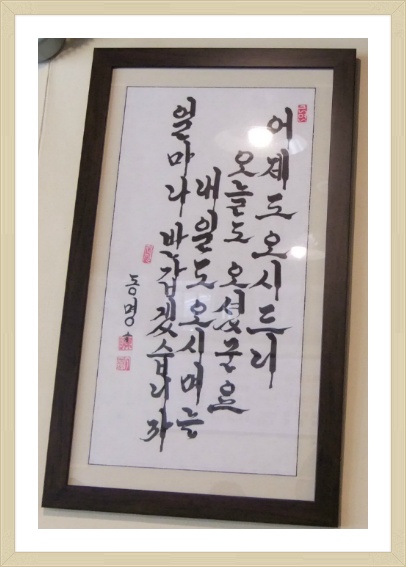 어제도 오시드니
오늘도 오셨군요
내일도 오시며는
얼마나 반갑겠습니까
동명